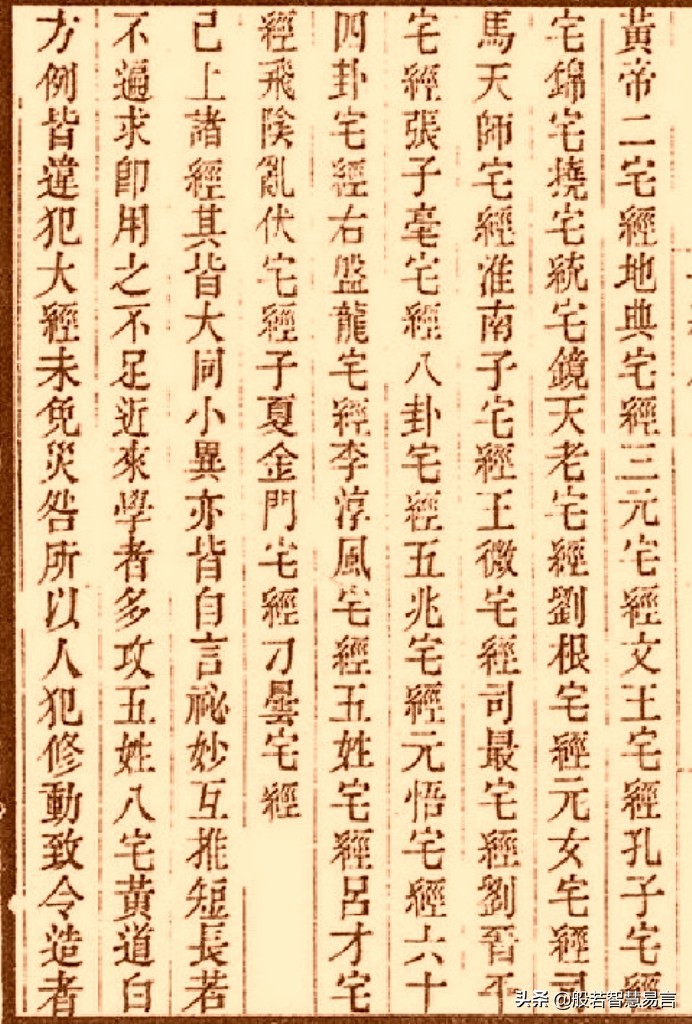 黃帝二宅經地典宅經三元宅經文王宅經孔子宅經
宅錦宅撓宅統宅鏡天老宅經劉根宅經元女宅經司
馬天師宅經淮南子宅經王微宅經司最宅經劉晉平
宅經張子毫宅經八卦宅經五兆宅經元悟宅經六十
四卦宅經右盤龍宅經李淳風宅經五姓宅經呂才宅
經飛陰亂伏宅經子夏金門宅經刁曇宅經
已上諸經其皆大同小異亦皆自言祕妙互推短長若
不遍求即用之不足近來學者多攻五姓八宅黃道白
方例皆違犯大經未免災咎所以人犯修動致令造者
头条 @般若智慧易言